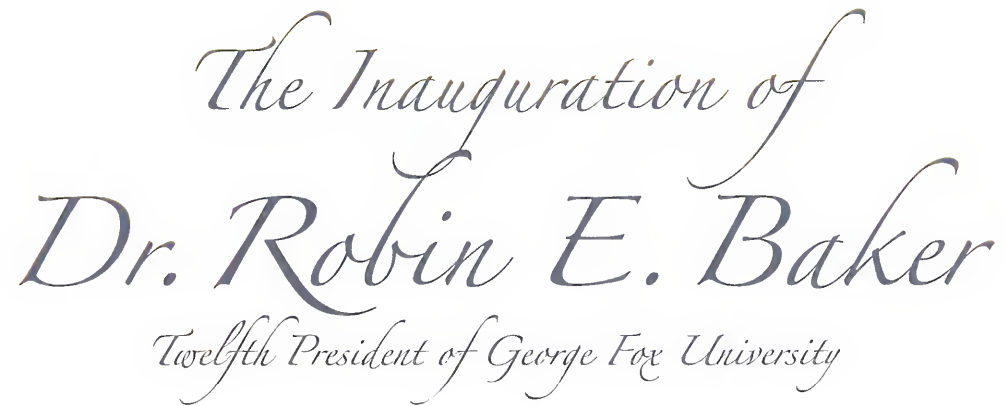 The Inauguration of
Dr. Robin E. Baker
Twelfth President of George Fox University